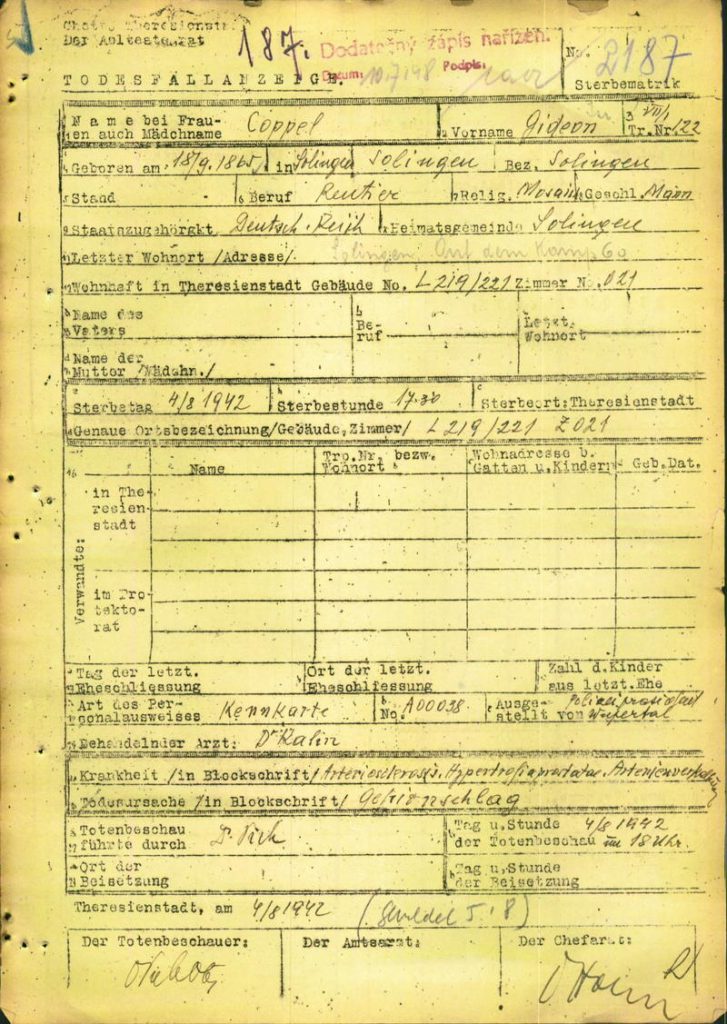 Der Aeltestenrat
187.
Dodatečný zápis nařízen.
Datum: 10.7.48 Podpis:
No. 2187
Sterbematrik
TODESFALLANZEIGE.
Name bei Frau-
en auch Mädchname Coppel Vorname Gideon Tr.Nr. VII/1 122
Geboren am 18/9.1865 in Solingen Solingen Bez. Solingen
Stand Beruf Rentier Relig. Mosaisch Geschl. Mann
Staatszugehörgkt Deutsch. Reich Heimatsgemeinde Solingen
Letzter Wohnort /Adresse/ Solingen, Auf dem Kamp 60
Wohnhaft in Theresienstadt Gebäude No. L 219/221 Zimmer No. 021
Name des
Vaters
Be-
ruf
Letzt.
Wohnort
Name der
Mutter /Mädchn./
Sterbetag 4/8 1942 Sterbestunde 17.30 Sterbeort: Theresienstadt
Genaue Ortsbezeichnung/Gebäude, Zimmer/ L 219/221 Z 021
Verwandte:
Name
Trp.Nr. bezw.
Wohnort
Wohnadresse b.
Gatten u. Kindern
Geb.Dat.
in There-
sien-
stadt
im Pro-
tekto-
rat
Tag der letzt.
Eheschliessung
Ort der letzt.
Eheschliessung
Zahl d. Kinder
aus letzt. Ehe
Art des Per-
sonalausweises Kennkarte No. A00038 Ausge-
stellt von Polizeipräsident Wupertal
Behandelnder Arzt:
Krankheit /in Blockschrift/ Arteriosclerosis, Hypertrofia prostatae, Arterienverkalkung
Todesursache /in Blockschrift/ Gehirnschlag
Totenbeschau
führte durch
Tag u. Stunde
der Totenbeschau 4/8 1942 um 18 Uhr.
Ort der
Beisetzung
Tag u. Stunde
der Beisetzung
Theresienstadt, am 4/8 1942
Der Totenbeschauer:
Der Amtsarzt:
Der Chefarzt: